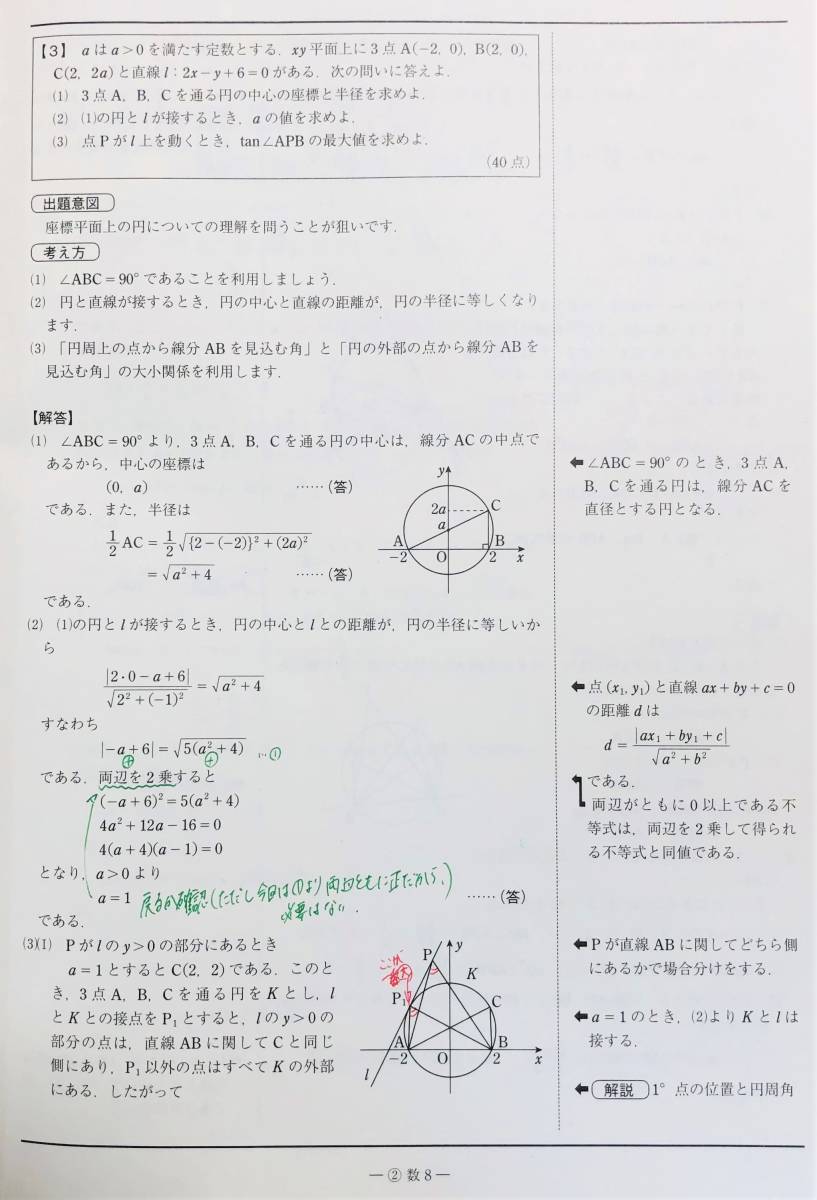 【3】 aはa>0を満たす定数とする．xy平面上に3点A(−2, 0)，B(2, 0)，
C(2, 2a)と直線l：2x−y+6=0がある．次の問いに答えよ．
(1) 3点A，B，Cを通る円の中心の座標と半径を求めよ．
(2) (1)の円とlが接するとき，aの値を求めよ．
(3) 点Pがl上を動くとき，tan∠APBの最大値を求めよ．
(40点)
出題意図
座標平面上の円についての理解を問うことが狙いです．
考え方
(1) ∠ABC=90°であることを利用しましょう．
(2) 円と直線が接するとき，円の中心と直線の距離が，円の半径に等しくなり
ます．
(3) 「円周上の点から線分ABを見込む角」と「円の外部の点から線分ABを
見込む角」の大小関係を利用します．
【解答】
(1) ∠ABC=90°より，3点A，B，Cを通る円の中心は，線分ACの中点で
あるから，中心の座標は
(0, a) ……(答)
である．また，半径は
1/2 AC = 1/2 √({2−(−2)}²+(2a)²)
= √(a²+4) ……(答)
である．
y
2a
a
C
A
B
−2
O
2
x
← ∠ABC=90°のとき，3点A，
B，Cを通る円は，線分ACを
直径とする円となる．
(2) (1)の円とlが接するとき，円の中心とlとの距離が，円の半径に等しいか
ら
|2·0−a+6| / √(2²+(−1)²) = √(a²+4)
すなわち
|−a+6| = √(5(a²+4)) …①
⊕ ⊕
である．両辺を2乗すると
(−a+6)²=5(a²+4)
4a²+12a−16=0
4(a+4)(a−1)=0
となり，a>0より
a=1 ……(答)
戻るか確認(ただし今回は①より両辺ともに正だから，)
必要はない．
である．
← 点(x₁, y₁)と直線ax+by+c=0
の距離dは
d = |ax₁+by₁+c| / √(a²+b²)
である．
両辺がともに0以上である不
等式は，両辺を2乗して得られ
る不等式と同値である．
(3)(I) Pがlのy>0の部分にあるとき
a=1とするとC(2, 2)である．このと
き，3点A，B，Cを通る円をKとし，l
とKとの接点をP₁とすると，lのy>0の
部分の点は，直線ABに関してCと同じ
側にあり，P₁以外の点はすべてKの外部
にある．したがって
ここが
P
y
K
P₁
C
A
B
−2
O
2
x
l
← Pが直線ABに関してどちら側
にあるかで場合分けをする．
← a=1のとき，(2)よりKとlは
接する．
← 解説 1° 点の位置と円周角
― ② 数8 ―